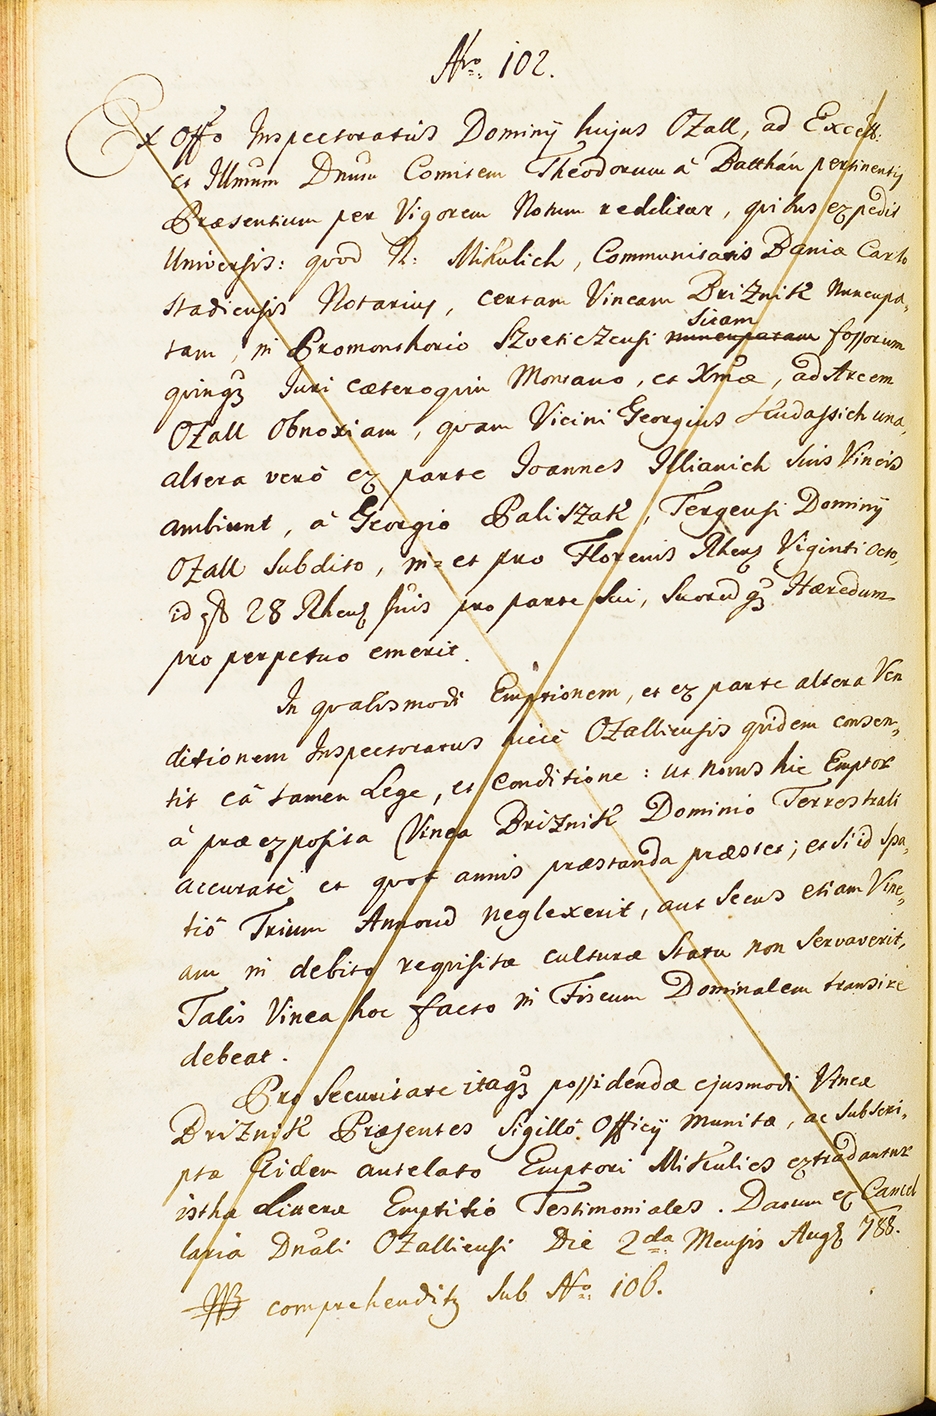 Nro: 102.
Ex Offo Inspectoratus Dominÿ hujus Ozall, ad Excell:
et Illmum Dnum Comitem Theodorum à Batthán pertinentis
Præsentium per Vigorem Notum redditur, quibus expedit
Universis: quod N: Mikulich, Communitatis Baniæ Carlo
stadiensis Notarius, certam Vineam Briznik nuncupa,
tam, in Promonthorio Szveticzensi nuncupatam sitam fossorum
quinqz Juri cæteroquin Montano, et Xmæ, ad Arcem
Ozall obnoxiam, quam Vicini Georgius Kudassich una,
altera verò ex parte Joannes Illianich suis Vineis
ambiunt, à Georgio Paliszak, Tergensi Dominÿ
Ozall Subdito, in= et pro Florenis Rhens Viginti octo,
id est 28 Rhens suis pro parte sui, suorumqz Hæredum
pro perpetuo emerit.
In qualismodi Emptionem, et ex parte altera Ven
ditionem Inspectoratus hicce Ozalliensis quidem consen,
tit eâ tamen Lege, et Conditione: ut novus hic Emptor
à præexposita Vinea Briznik Dominio Terrestrali
accuratè et quot annis præstanda præstet; et si id spa,
tiô Trium Annorum neglexerit, aut secus etiam Vine,
am in debito requisitæ culturæ Statu non servaverit,
Talis Vinea hoc facto in Fiscum Dominalem transire
debeat.
Pro Securitate itaqz possidendæ ejusmodi Vineæ
Briznik Præsentes Sigillô Officÿ munitæ, ac subscri,
ptæ Eidem antelato Emptori Mikulics extradantur
isthæ Literæ Emptitiô Testimoniales. Datum ex Cancel
laria Dnali Ozalliensi Die 2da Mensis Augs 788.
NB comprehenditz sub No: 106.